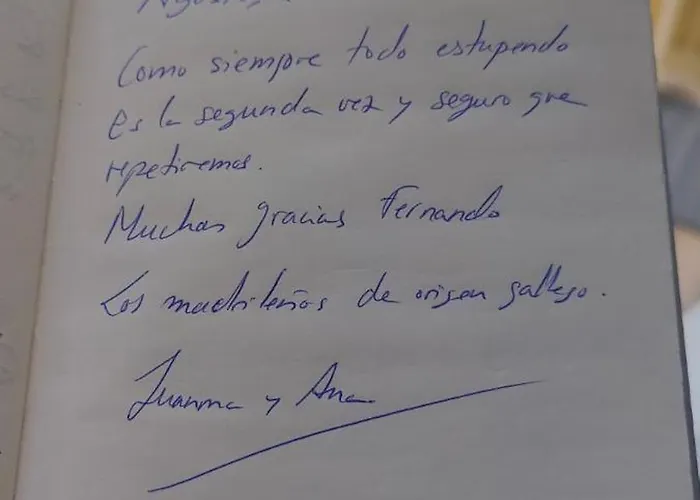 Como siempre todo estupendo
Es la segunda vez y seguro que
repetiremos.
Muchas gracias Fernando
Los madrileños de origen gallego.
Juanma y Ana.